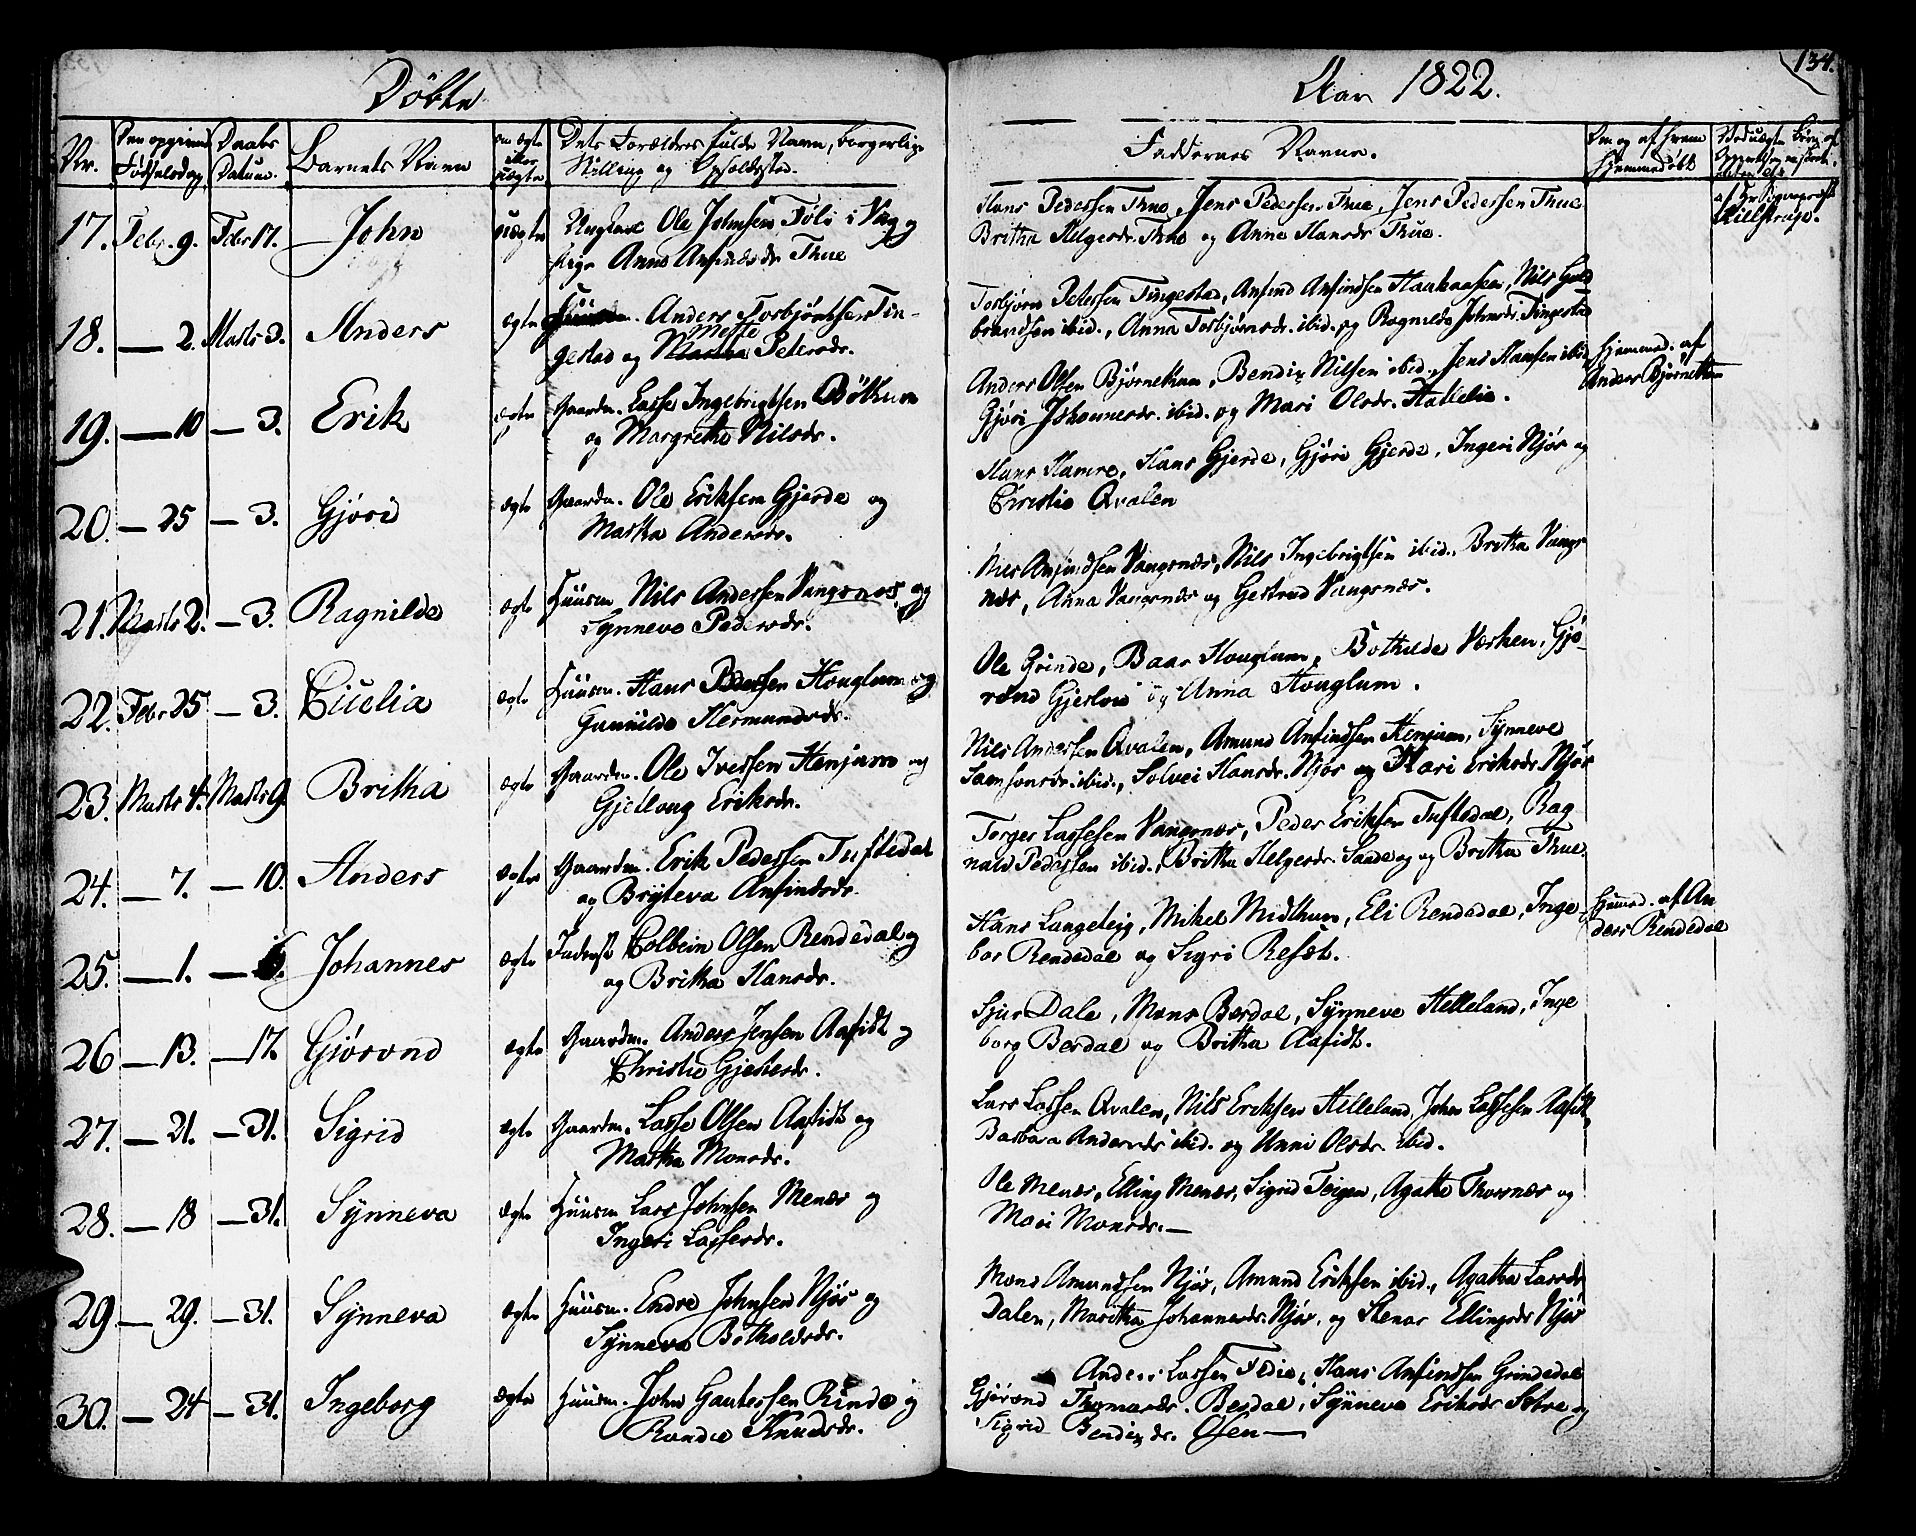 Døbte
Aar 1822.
134.
Nr.
Barnets Navn
Faddernes Navne.
17. Febr. 9. Febr 17. John uægte Ungkarl Ole Johnsen Føli i Vig og
Pige Anna Ansindsdr Thue
Hans Pedersen Thue, Jens Pedersen Thue, Jens Pedersen Thue
Britha Helgesdr. Thue og Anna Hansdr Thue.
18. — 2. Marts 3. Anders ægte Anders Torbjørnsen Tin-
gestad og Mette Petersdr.
Torbjørn Petersen Tingestad, Ansind Ansindsen Haukaasen, Nils Guld
brandsen ibid., Anna Torbjørnsdr. ibid. og Ragnilde Johnsdr. Tingestad
19. — 10 — 3. Erik ægte Gaardm. Lasse Ingebrigtsen Böthun
og Margrethe Nilsdr.
Anders Olsen Bjørnethun, Bendix Nilsen ibid., Jens Hansen ibid
Gjøri Johannesdr. ibid. og Mari Olsdr. Hallelia.
Hjemmed. af
Anders Bjørnethun
20. — 25 — 3. Gjøri ægte Gaardm. Ole Eriksen Gjerde og
Martha Andersdr.
Hans Hamre, Hans Gjerde, Gjøri Gjerde, Ingeri Njøs og
Christie Qvalen
21. Marts 2. — 3. Ragnilde ægte Huusm Nils Andersen Vangsnæs, og
Synneve Pedersdr.
Nils Ansindsen Vangsnæs, Nils Ingebrigtsen ibid., Britha Vangs
næs, Anna Vangsnæs og Gertrud Vangsnæs.
22. Febr 25 — 3. Cicelia ægte Huusm. Hans Pedersen Houglum og
Gunnilde Hermundsdr.
Ole Grinde, Baar Houglum, Bothilde Værken, Gjø-
rond Gjerlou og Anna Houglum.
23. Marts 4. Marts 9. Britha ægte Gaardm. Ole Iversen Henjum og
Gjertoug Eriksdr.
Nils Andersen Qvalen, Amund Ansindsen Henjum, Synneve
Samsonsdr. ibid., Solvei Hansdr. Njøs og Kari Eriksdr Njøs
24. — 7. — 10. Anders ægte Gaardm. Erik Pedersen Tuftedal
og Bryteva Ansindsdr.
Torger Lassesen Vangsnæs, Peder Eriksen Tuftedal, Rag
nald Pedersen ibid., Britha Helgesdr. Saude og Britha Thue.
25. — 1. Johannes ægte Inderst Colbein Olsen Rendedal og
og Britha Hansdr.
Hans Langeteig, Mikel Midthun, Eli Rendedal, Inge
bor Rendedal og Sigri Resæt.
Hjemmed. af An
ders Rendedal
26 — 13. — 17. Gjørond ægte Gaardm. Anders Jensen Aafidt og
Christie Gjestesdr.
Sjur Dale, Mons Berdal, Synneve Helleland, Inge
borg Berdal og Britha Aafidt.
27. — 21. — 31. Sigrid ægte Gaardm. Lasse Olsen Aafidt og
Martha Monsdr.
Lars Larsen Qvalen, Nils Eriksen Helleland, John Lassesen Aafidt,
Barbara Andersdr ibid. og Unni Olsdr. ibid.
28. — 18 — 31. Synneva ægte Huusm Lars Johnsen Menæs og
Ingeri Lassesdr.
Ole Menæs, Elling Menæs, Sigrid Teigen, Agatha Thorsnæs og
Mari Monsdr. —
29 — 29. — 31. Synneva ægte Huusm. Endre Johnsen Njøs og
Synneva Botholdsdr.
Mons Amundsen Njøs, Amund Eriksen ibid., Agatha Larsdr
Dalen, Maritha Johannesdr. Njøs, og Stenar Ellingsdr Njøs
30. — 24 — 31. Ingeborg ægte Huusm. John Gautessen Rinde og
Randie Knudsdr.
Anders Larsen Fedie, Hans Ansindsen Grindedal
Gjørond Thomasdr. Berdal, Synneva Eriksdr Sobre og
Sigrid Bendixdr. Olsen —